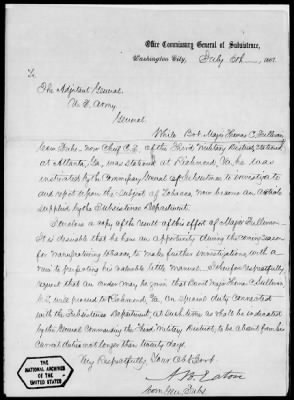 Office Commissary General of Subsistence,
Washington City, July 5th, 186
To
The Adjutant General
U. S. Army
General
While Bvt. Major Thomas C. Sullivan
Com. Subs. now Chief C.S. of the Third Military District, stationed
at Atlanta, Ga, was stationed at Richmond, Va, he was
instructed by the Commissary General of Subsistence to investigate
and report upon the subject of Tobacco, now become an article
supplied by the Subsistence Department.
I enclose a copy of the result of this effort of Major Sullivan.
It is desirable that he have an opportunity during the coming season
for manufacturing tobacco, to make further investigations, with a
view to perfecting his valuable little manual. I therefore respectfully
request that an order may be given that Brevet Major Thomas C. Sullivan,
C.S. will proceed to Richmond, Va, on special duty connected
with the Subsistence Department, at such time as shall be indicated
by the General Commanding the Third Military District, to be absent from his
current duties not longer than twenty days.
Very Respectfully, Your Obt Servt
A. B. Eaton
Com. Gen. Subs
THE
NATIONAL ARCHIVES
OF THE
UNITED STATES